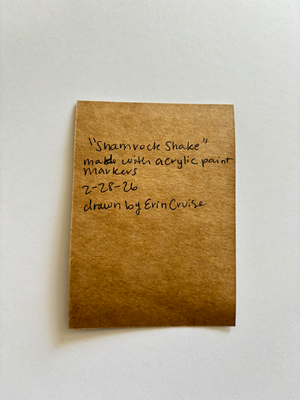 "Shamrock Shake"
made with acrylic paint
markers
2-28-26
drawn by Erin Cruise